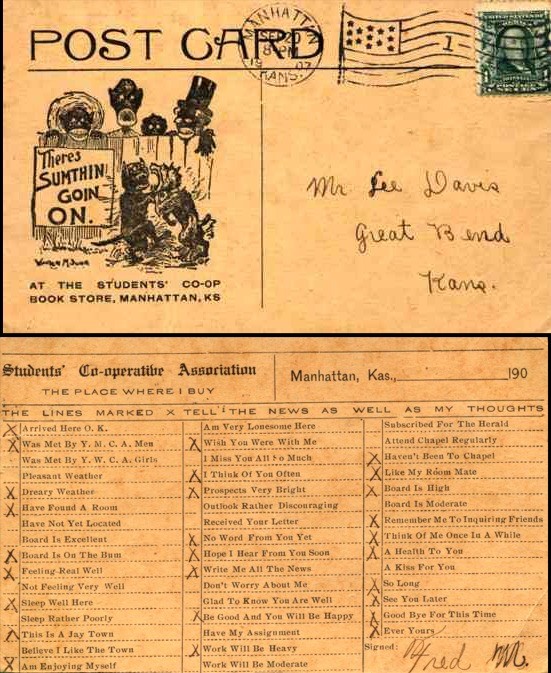 POST CARD
MANHATT
8 PM
KANS.
1
Theres
SUMTHIN
GOIN
ON.
AT THE STUDENTS' CO-OP
BOOK STORE, MANHATTAN, KS
Mr. Lee Davis
Great Bend
Kans.
Students' Co-operative Association
THE PLACE WHERE I BUY
Manhattan, Kas., 190
THE LINES MARKED X TELL THE NEWS AS WELL AS MY THOUGHTS
X Arrived Here O. K.
X Was Met By Y. M. C. A. Men
Was Met By Y. W. C. A. Girls
Pleasant Weather
X Dreary Weather
X Have Found A Room
Have Not Yet Located
Board Is Excellent
X Board Is On The Bum
X Feeling Real Well
Not Feeling Very Well
X Sleep Well Here
Sleep Rather Poorly
X This Is A Jay Town
Believe I Like The Town
X Am Enjoying Myself
Am Very Lonesome Here
X Wish You Were With Me
I Miss You All So Much
X I Think Of You Often
X Prospects Very Bright
Outlook Rather Discouraging
Received Your Letter
X No Word From You Yet
X Hope I Hear From You Soon
X Write Me All The News
Don't Worry About Me
Glad To Know You Are Well
X Be Good And You Will Be Happy
Have My Assignment
X Work Will Be Heavy
Work Will Be Moderate
Subscribed For The Herald
Attend Chapel Regularly
X Haven't Been To Chapel
X Like My Room Mate
X Board Is High
Board Is Moderate
X Remember Me To Inquiring Friends
X Think Of Me Once In A While
X A Health To You
A Kiss For You
X So Long
X See You Later
X Good Bye For This Time
X Ever Yours
Signed: Fred